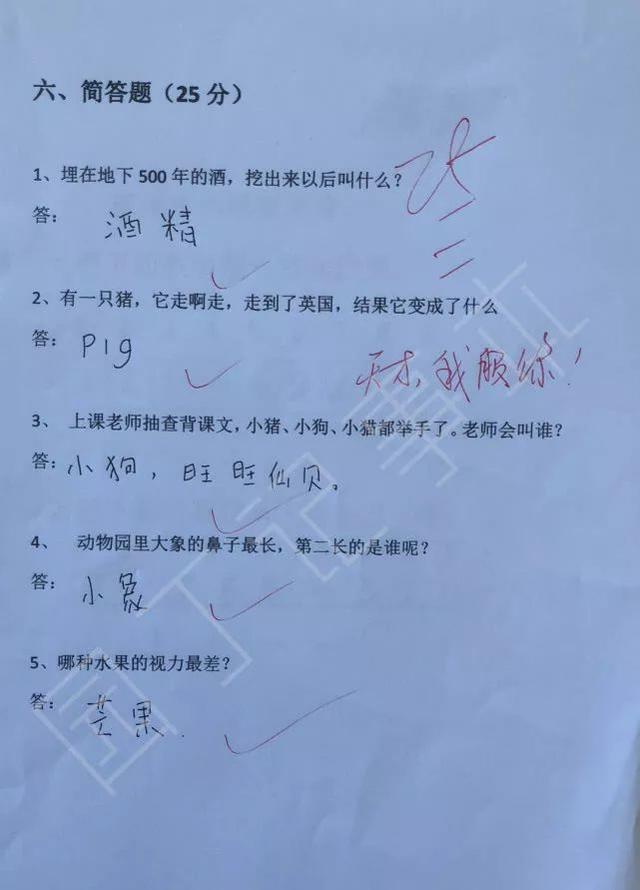 六、简答题（25 分）
1、埋在地下 500 年的酒，挖出来以后叫什么？
25
答： 酒精
2、有一只猪，它走啊走，走到了英国，结果它变成了什么
答： Pig
天才，我服你！
3、 上课老师抽查背课文，小猪、小狗、小猫都举手了。老师会叫谁？
答：小狗，旺旺仙贝。
4、 动物园里大象的鼻子最长，第二长的是谁呢？
答： 小象
5、哪种水果的视力最差？
答： 芒果.
园丁记事本